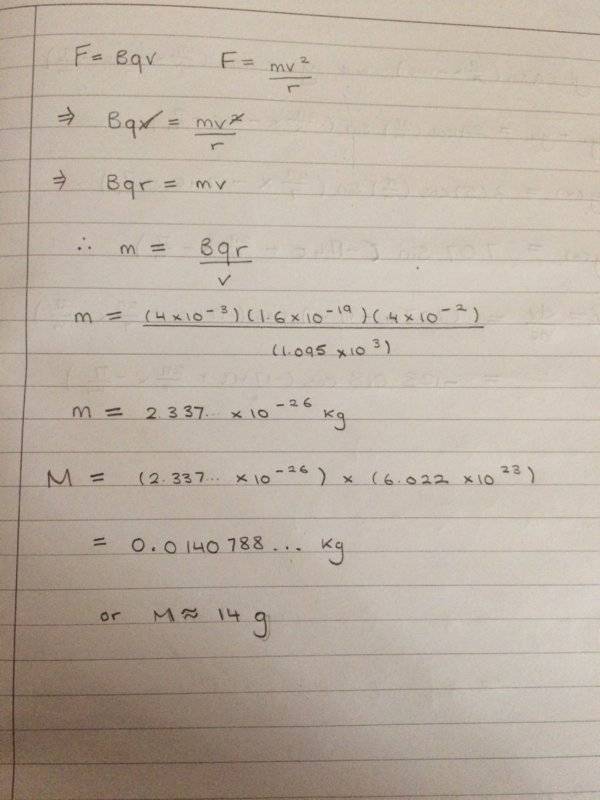 F = Bqv F = mv²/r
⇒ Bqv = mv²/r
⇒ Bqr = mv
∴ m = Bqr/v
m = (4×10⁻³)(1.6×10⁻¹⁹)(.4×10⁻²)/(1.095×10³)
m = 2.337... ×10⁻²⁶ kg
M = (2.337... ×10⁻²⁶) × (6.022 ×10²³)
= 0.0140788... kg
or M ≈ 14 g